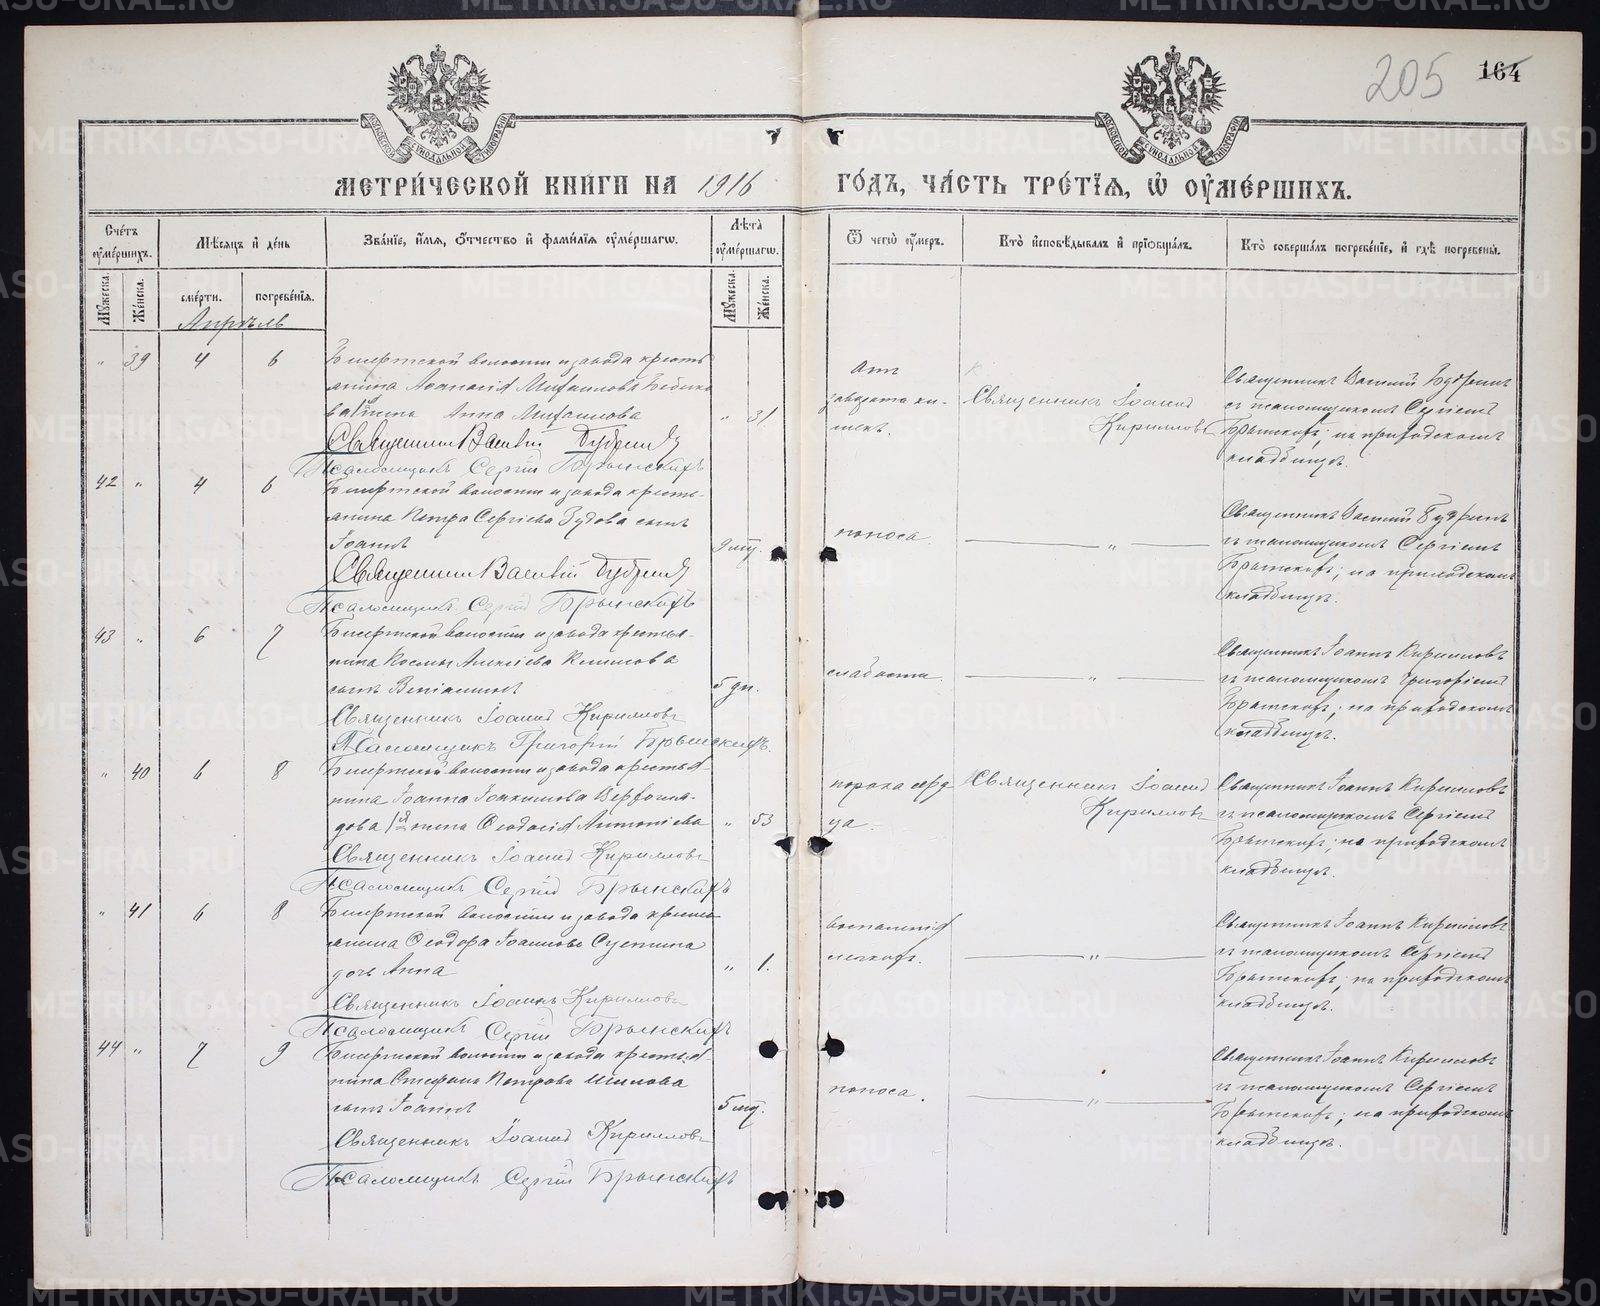 205
164
МЕТРИ́ЧЕСКОЙ КНИ́ГИ НА 1916
ГО́ДЪ, ЧА́СТЬ ТРЕ́ТІѦ, Ѡ ОУ҆МЕ́РШИХЪ.
Сче́тъ оу҆ме́ршихъ.
Мѣ́сѧцъ и҆ де́нь
Зва́нїе, и҆́мѧ, ѻ҆́тчество и҆ фами́лїѧ оу҆ме́ршагѡ.
Лѣ́та оу҆ме́ршагѡ.
Ѿ чегѡ̀ оу҆́меръ.
Кто̀ и҆сповѣ́дывалъ и҆ прїобща́лъ.
Кто̀ соверша́лъ погребе́нїе, и҆ гдѣ̀ погребены̀.
Мꙋ́жеска.
Же́нска.
сме́рти.
погребе́нїѧ.
Мꙋ́жеска.
Же́нска.
Апрѣль
" 39 4 6
Бисертской волости и завода кресть
янина Аѳанасія Михаилова
жена Анна Михаилова " 31
Священникъ Василій Будринъ
Псаломщикъ Сергій Брынскихъ
отъ
заворота ки-
шекъ.
Священникъ Іоаннъ
Кирилловъ
Священникъ Василій Будринъ
съ псаломщикомъ Сергіемъ
Брынскихъ; на приходскомъ
кладбищѣ.
42 " 4 6
Бисертской волости и завода кресть-
янина Петра Сергіева Зудова сынъ
Іоаннъ 9 мѣс.
Священникъ Василій Будринъ
Псаломщикъ Сергій Брынскихъ
поноса.
"
Священникъ Василій Будринъ
съ псаломщикомъ Сергіемъ
Брынскихъ; на приходскомъ
кладбищѣ.
43 " 6 7
Бисертской волости и завода крестья-
нина Космы Алексіева Климова
сынъ Веніаминъ 5 дн.
Священникъ Іоаннъ Кирилловъ
Псаломщикъ Григорій Брынскихъ.
слабости.
"
Священникъ Іоаннъ Кирилловъ
съ псаломщикомъ Григоріемъ
Брынскихъ; на приходскомъ
кладбищѣ.
" 40 6 8
Бисертской волости и завода крестья-
нина Іоанна Іоакимова
жена Ѳеодосія Антоніева " 53
Священникъ Іоаннъ Кирилловъ
Псаломщикъ Сергій Брынскихъ
порока серд
ца.
Священникъ Іоаннъ
Кирилловъ
Священникъ Іоаннъ Кирилловъ
съ псаломщикомъ Сергіемъ
Брынскихъ; на приходскомъ
кладбищѣ.
" 41 6 8
Бисертской волости и завода кресть
янина Ѳеодора Іоаннова
дочь Анна " 1.
Священникъ Іоаннъ Кирилловъ
Псаломщикъ Сергій Брынскихъ
воспаленія
легкихъ.
"
Священникъ Іоаннъ Кирилловъ
съ псаломщикомъ Сергіемъ
Брынскихъ; на приходскомъ
кладбищѣ.
44 " 7 9
Бисертской волости и завода крестья
нина Стефана Петрова Шилова
сынъ Іоаннъ 5 мѣс.
Священникъ Іоаннъ Кирилловъ
Псаломщикъ Сергій Брынскихъ
поноса.
"
Священникъ Іоаннъ Кирилловъ
съ псаломщикомъ Сергіемъ
Брынскихъ; на приходскомъ
кладбищѣ.
METRIKI.GASO-URAL.RU